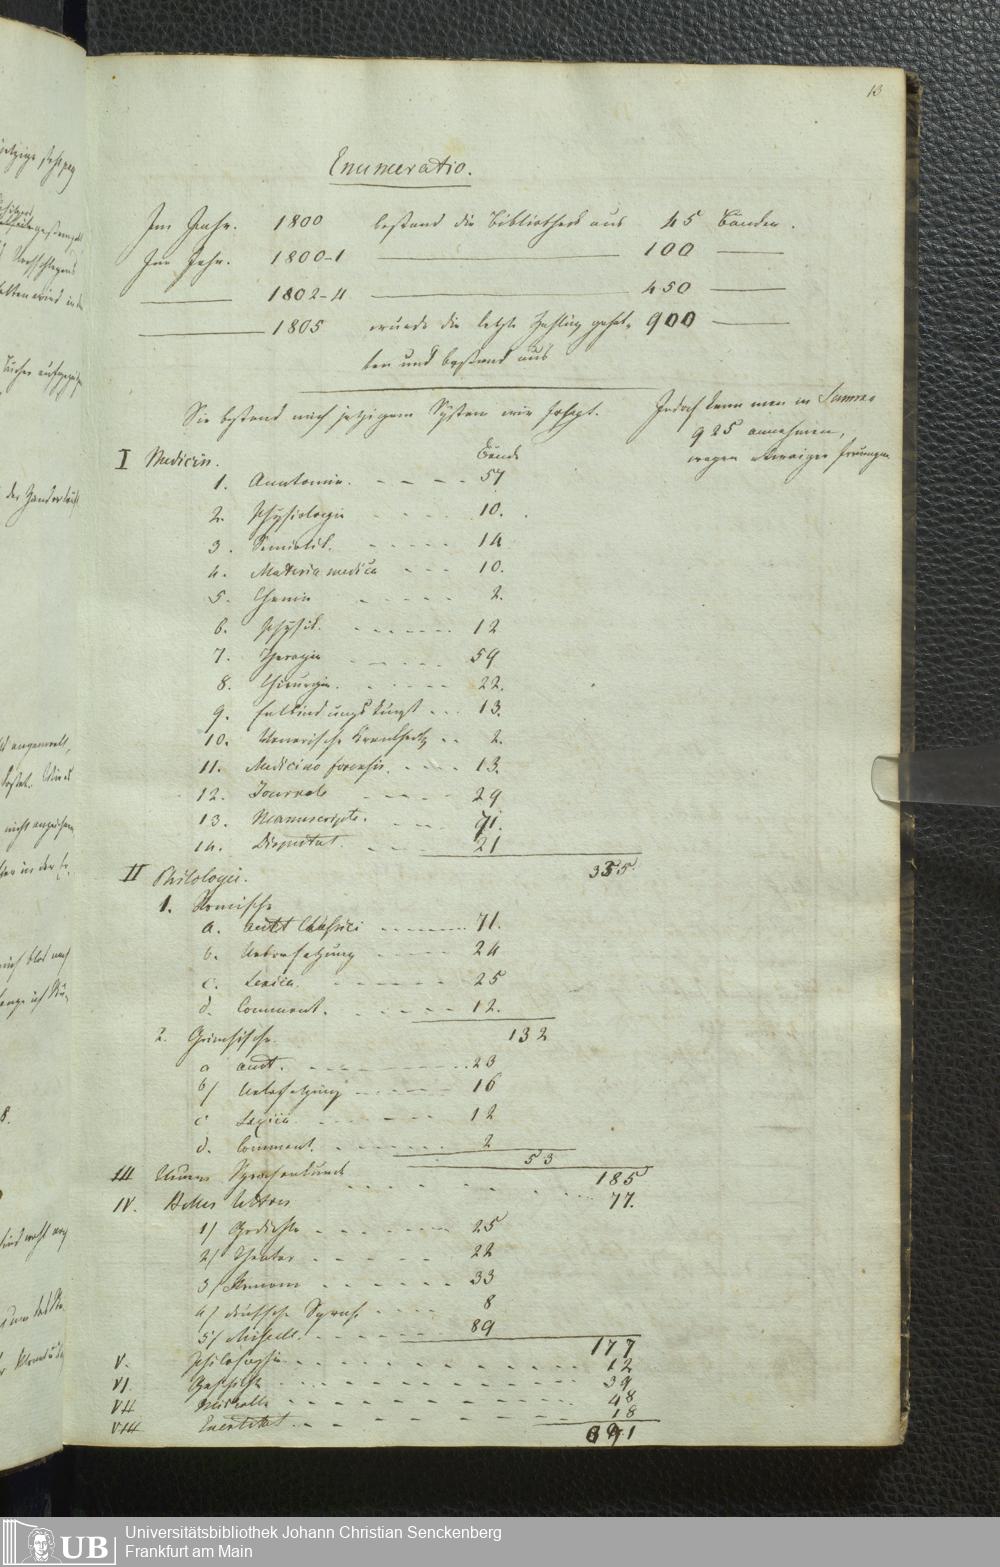 13
Enumeratio.
Im Jahr. 1800 bestand die Bibliotheck aus 45 Bänden.
Im Jahr. 1800-1 100
1802-4 450
1805 wurde die letzte Zählung gehal- 900
ten und bestand aus
Sie bestand nach jetzigem System wie folgt.
Jedoch kann man in Summa
925 annehmen,
wegen etwaiger Irrungen
I Medicin. Bände
1. Anatomie. 57
2. Physiologie 10.
3. Semiotik. 14
4. Materia medica 10.
5. Chemie 2.
6. Physik. 12
7. Therapie 59
8. Chirurgie. 22.
9. Entbindungskunst 13.
10. Venerische Krankheit 2.
11. Medicina forensis. 13.
12. Journale 29
13. Manuscripte. 91.
14. Disputat. 21
355.
II Philologie.
1. Römische
a. Auct Classici 71.
b. Uebersetzung 24
c. Lexica. 25
d. Comment. 12.
132
2. Griechische.
a auct. 23
b/ Uebersetzung 16
c Lexica. 12
d. Comment. 2
53
185
III Neuere Sprachenkunde 77.
IV. Belles lettres
1/ Gedichte 25
2/ Theater 22
3/ Romane 33
4/ deutsche Sprach. 8
5/ Miscell. 89
177
V. Philosophie 12
VI. Geschichte 39
VII Miscella 48
VIII 18
Universitätsbibliothek Johann Christian Senckenberg
Frankfurt am Main
UB